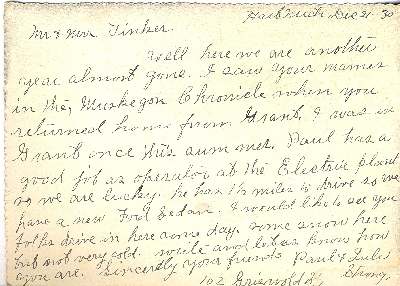 Hart Mich. Dec 21 - 30
Mr & Mrs Tinker.
Well here we are another
year almost gone. I saw your names
in the, Muskegon Chronicle when you
returned home from Grant. I was in
Grant once this summer. Paul has a
good job as operator at the Electric plant
so we are lucky. he has 1½ miles to drive so we
have a new Ford Sedan. I would like to see you
folks drive in here some day. some snow here
but not very cold. write and let us know how
you are. Sincerly your friends Paul & Lulu
102 Griswold St, Strong.